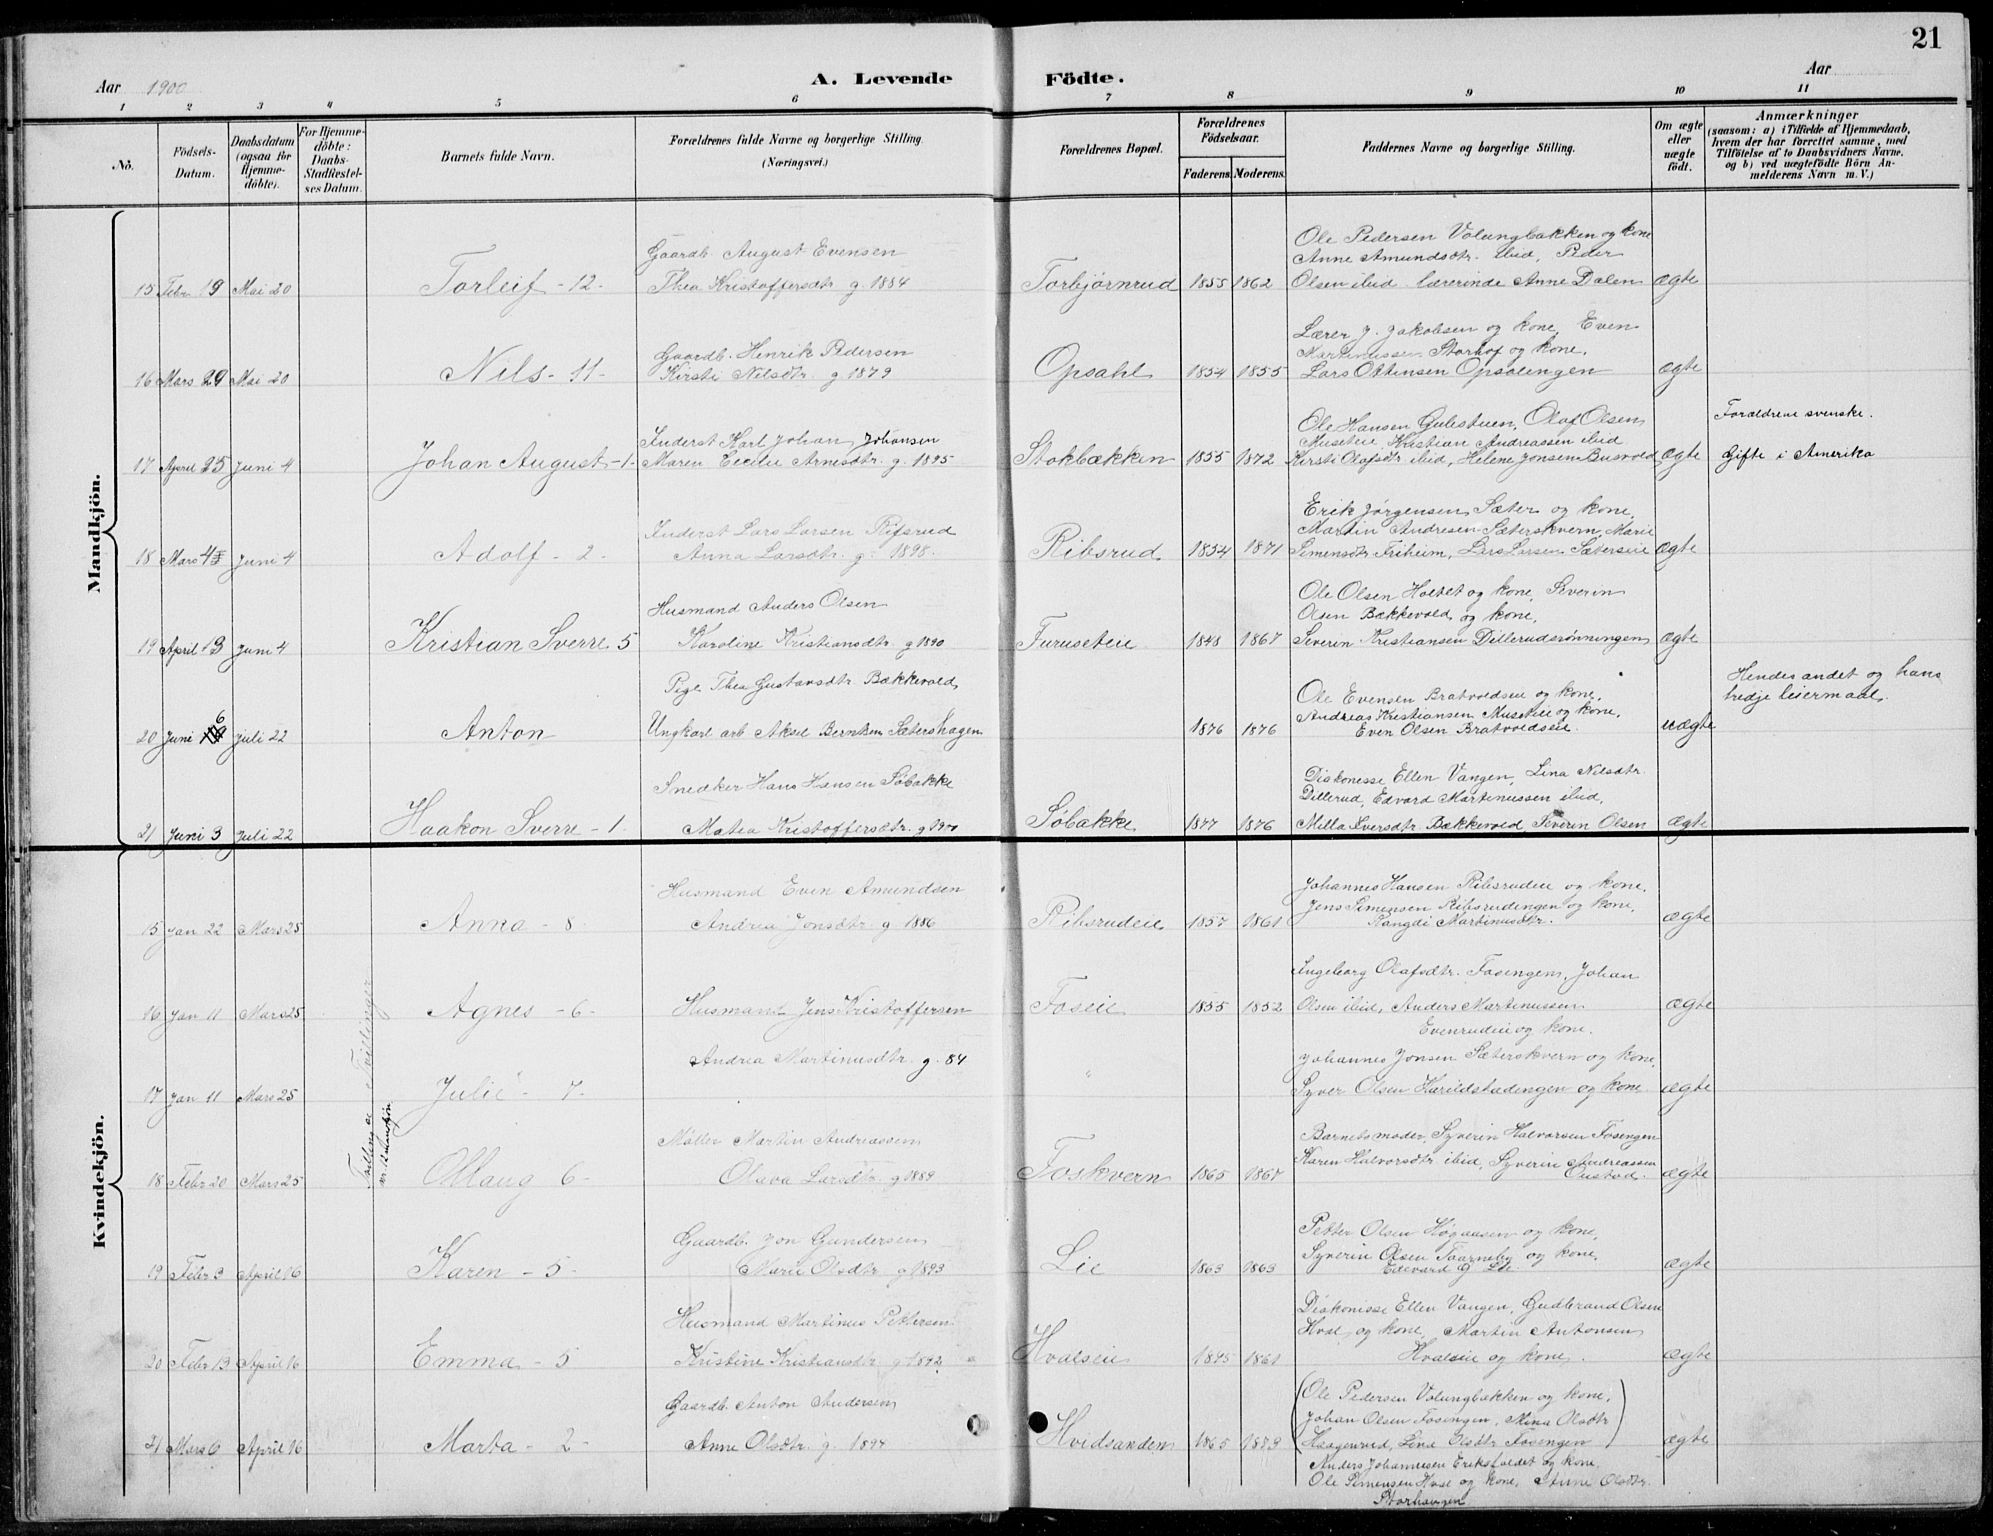 21
Aar 1900
A. Levende Födte.
Aar
1 2 3 4 5 6 7 8 9 10 11
No.
Födsels-Datum.
Daabsdatum (ogsaa for Hjemmedöbte).
For Hjemmedöbte: Daabs-Stadfæstelses Datum.
Barnets fulde Navn.
Forældrenes fulde Navne og borgerlige Stilling. (Næringsvei.)
Forældrenes Bopæl.
Forældrenes Födselsaar.
Faderens. Moderens.
Faddernes Navne og borgerlige Stilling.
Om ægte eller uægte födt.
Anmærkninger
(saasom: a) i Tilfælde af Hjemmedaab, hvem der har forrettet samme, med Tilföielse af to Daabsvidners Navne, og b) ved uægtefödte Börn Anmelderens Navn m. V.)
Mandkjön.
Gaardb. August Evensen
Ole Pedersen Volungbakken og kone
Anne Amundsdtr. ibid, Peder
15 Febr 19 Mai 20 Torleif - 12 - Thea Kristoffersdtr. g. 1884 Torbjørnrud 1855 1862 Olsen ibid lærerinde Anne Dalen ægte
Gaardb. Henrik Pedersen
Lærer J. Jakobsen og kone, Even
Martinussen Storhof og kone.
16 Mars 29 Mai 20 Nils - 11 - Kirsti Nilsdtr. g 1879 Opsahl 1854 1855 Lars Ottinsen Opsalengen ægte
Forældrene svenske.
Inderst Karl Johan Johansen
Ole Hansen Gulestuen, Olaf Olsen
Museteie, Kristian Andreassen ibid
17 April 25 Juni 4 Johan August - 1 - Maren Cecilie Arnesdtr. g. 1895 Stokbækken 1855 1872 Kirsti Olafsdtr ibid, Helene Jonsen Busvold ægte Gifte i Amerika
Inderst Lars Larsen Rifsrud
Erik Jørgensen Sæter og kone,
Martin Andresen Sæterskvern, Marie
18 Mars 4 Juni 4 Adolf - 2 - Anna Larsdtr. g 1898. Ribsrud 1854 1871 Simensdtr Friheim, Lars Larsen Sætereie ægte
Husmand Anders Olsen
Ole Olsen Holtet og kone, Severin
Olsen Bækkevold og kone,
19 April 13 Juni 4 Kristian Sverre 5 Karoline Kristiansdtr. g 1890 Furuseteie 1848 1867 Severin Kristiansen Dillerudsrønningen ægte
Pige Thea Gustavsdtr. Bækkevold
Hendes andet og hans
tredje leiermaal.
Ole Evensen Bratvoldseie og kone,
Andreas Kristiansen Museteie og kone,
20 Juni 6 juli 22 Anton Ungkarl arb Aksel Berntsen Sætershagen 1876 1876 Even Olsen Bratvoldseie. uægte
Snedker Hans Hansen Søbakke
Diakonesse Ellen Vangen, Lina Nilsdtr.
Dillerud, Edvard Martinussen ibid,
21 Juni 3 Juli 22 Haakon Sverre - 1. Matea Kristoffersdtr. g 1900 Søbakke 1877 1876 Milla Iversdtr. Bækkevold Severin Olsen ægte
Kvindekjön.
Husmand Even Amundsen
Johannes Hansen Ribsrudeie og kone,
Jens Simensen Ribsrudengen og kone,
15 Jan 22 Mars 25 Anna - 8 - Andrea Jonsdtr. g 1886 Ribsrudeie 1857 1861 Rangdi Martinusdtr. ægte
Ingeborg Olafsdtr. Fosengen, Johan
16 Jan 11 Mars 25 Agnes - 6 - Husmand Jens Kristoffersen Foseie 1855 1852 Olsen ibid, Anders Martinussen ægte
Evenrudeie og kone.
Tvillinger
Andrea Martinusdtr. g. 84
Johannes Jonsen Sæterskvern og kone,
17 Jan 11 Mars 25 Julie - 7 - " Syver Olsen Harildstadengen og kone ægte
Møller Martin Andreassen
Barnets moder, Syverin Halvorsen Fosengen
Karen Halvorsdtr ibid, Syverin Andreassen
18 Febr 20 Mars 25 Ollaug 6 - Olava Larsdtr. g 1889 Foskvern 1865 1867 Onstad. ægte
Gaardb. Jon Gundersen
Petter Olsen Høgaasen og kone,
Syverin Olsen Taarneby og kone,
19 Febr 3 April 16 Karen - 5 - Marie Olsdtr. g 1893 Lie 1863 1863 Edevard G Lie. ægte
Husmand Martinus Pettersen
Diakonisse Ellen Vangen, Gudbrand Olsen
Hval og kone, Martin Antonsen
20 Febr 13 April 16 Emma - 5 Kristine Kristiansdtr. g 1892 Hvalseie 1845 1861 Hvalseie og kone. ægte
Gaardb. Anton Andersen
(Ole Pedersen Volungbækken og kone,
Johan Olsen Fosengen, Mina Olsdtr
21 Mars 6 April 16 Marta - 2 - Anne Olsdtr. g. 1894 Hvidsanden 1865 1873 Haagenrud, Lina Olsdtr. Fosengen) ægte
Anders Johannesen Eriksfaldet og kone,
Ole Simensen Hval og kone, Stine Olsdtr.
Storhaugen